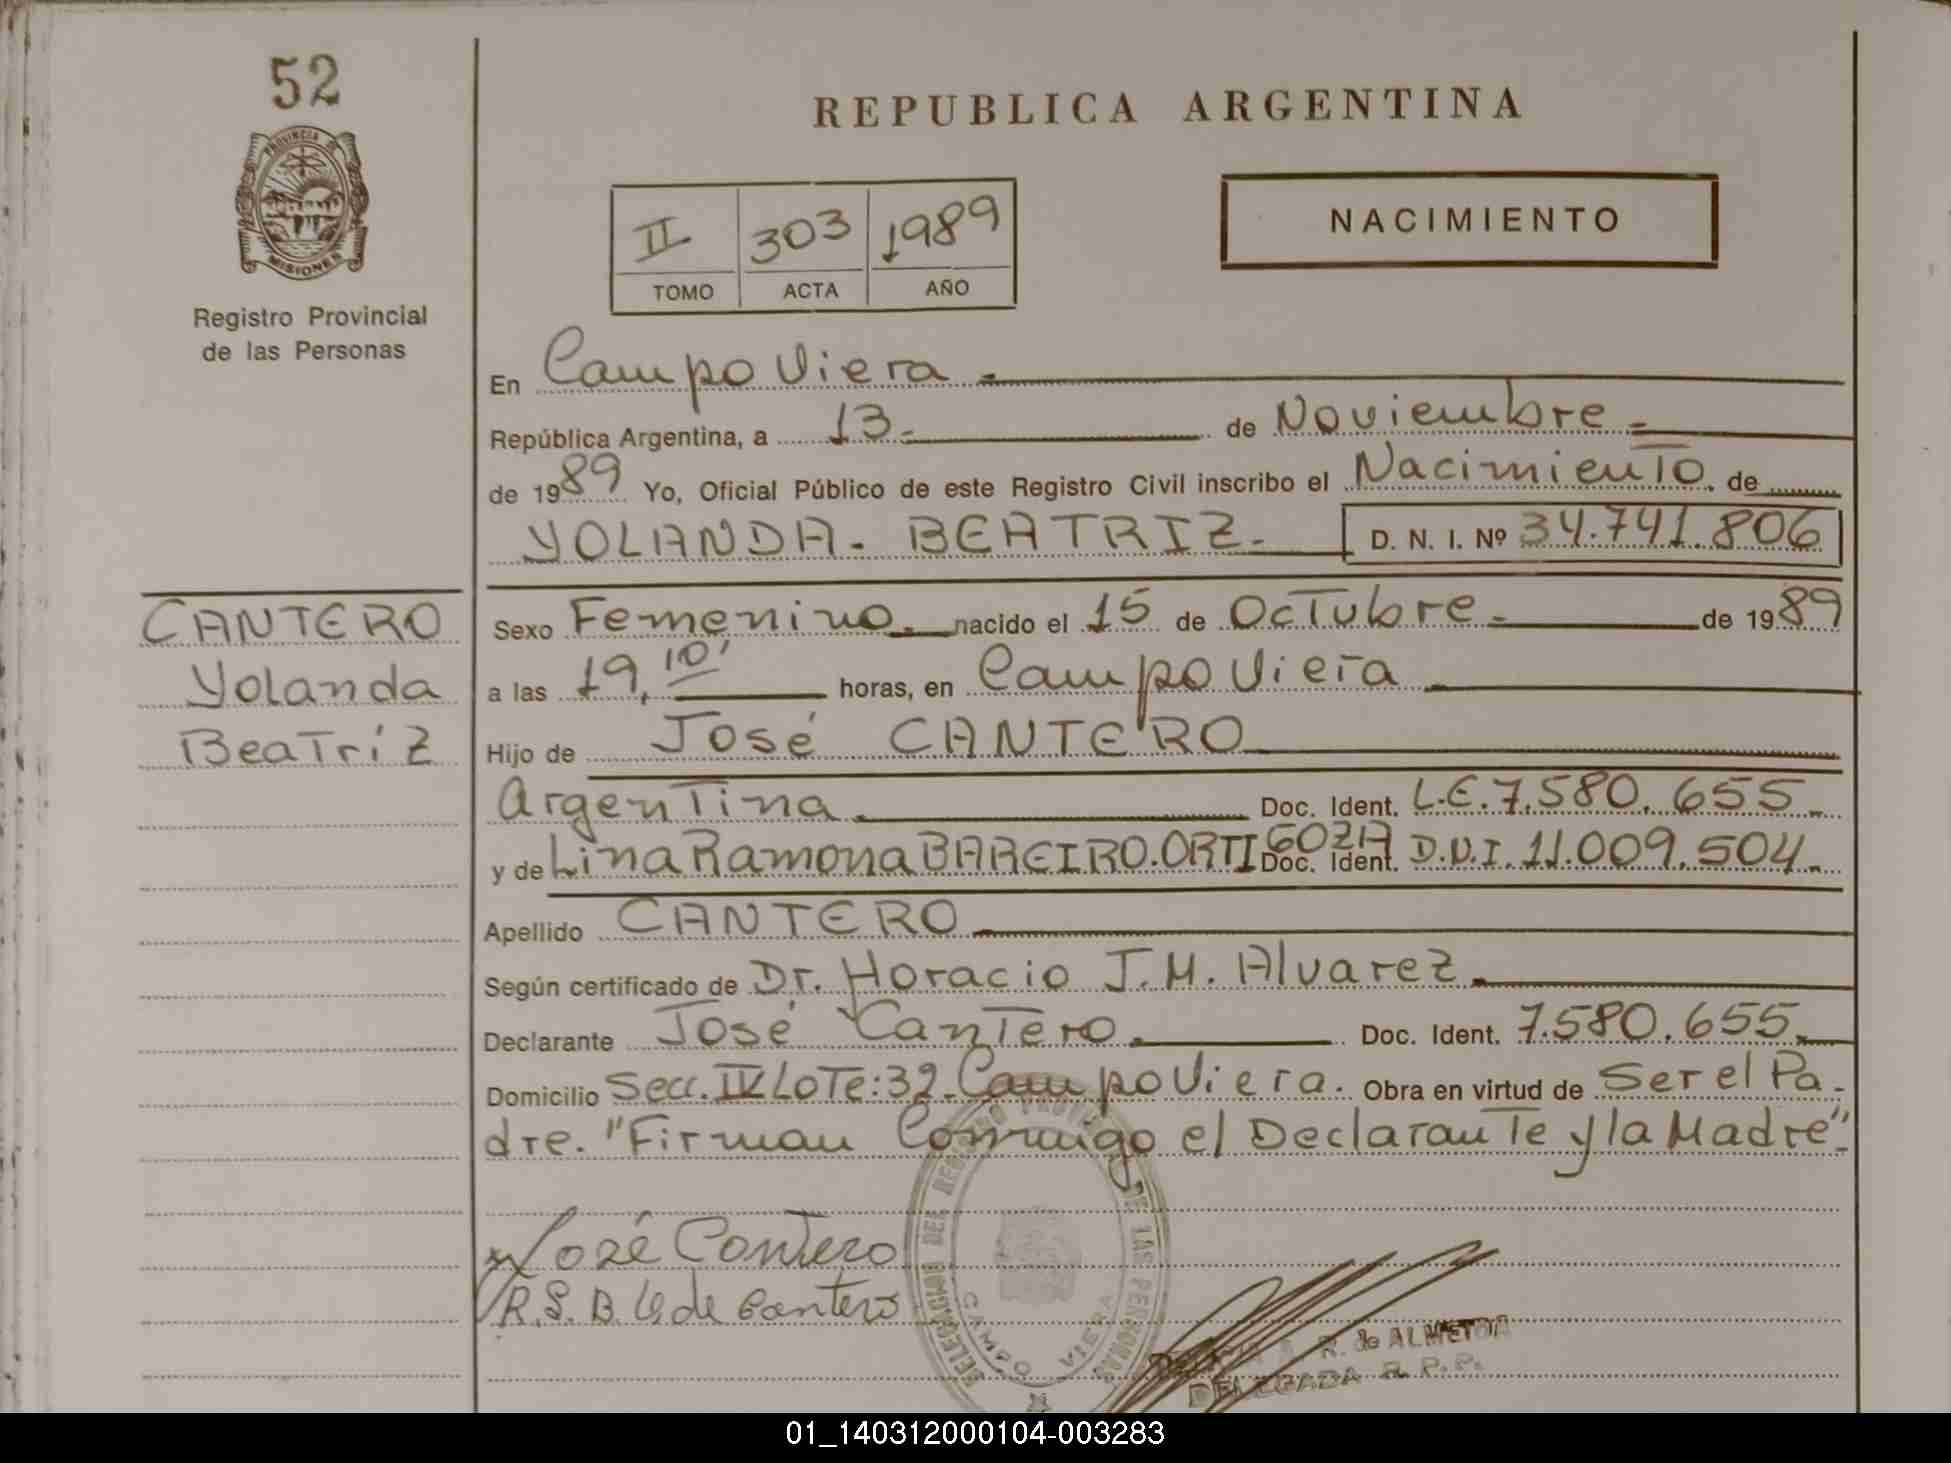 52
PROVINCIA DE
MISIONES
Registro Provincial
de las Personas
CANTERO
Yolanda
Beatríz
REPUBLICA ARGENTINA
II 303 1989
TOMO ACTA AÑO
NACIMIENTO
En Campo Viera.
República Argentina, a 13. de Noviembre.
de 1989 Yo, Oficial Público de este Registro Civil inscribo el Nacimiento. de
YOLANDA. BEATRIZ. D. N. I. Nº 34.741.806
Sexo Femenino. nacido el 15 de Octubre. de 1989
a las 19,10' horas, en Campo Viera
Hijo de José CANTERO
Argentina. Doc. Ident. L.E. 7.580.655.
y de Lina Ramona BAREIRO. ORTIGOZA Doc. Ident. D.N.I. 11.009.504.
Apellido CANTERO
Según certificado de Dr. Horacio J.M. Alvarez.
Declarante José Cantero. Doc. Ident. 7.580.655.
Domicilio Secc. IV Lote:32. Campo Viera. Obra en virtud de Ser el Pa-
dre. "Firman Conmigo el Declarante y la Madre".
José Contero
R.S.B. de Cantero
DELEGACION DEL REGISTRO PROVINCIAL DE LAS PERSONAS
CAMPO VIERA
R. de ALMEIDA
DELEGADA R. P. P.
01_140312000104-003283